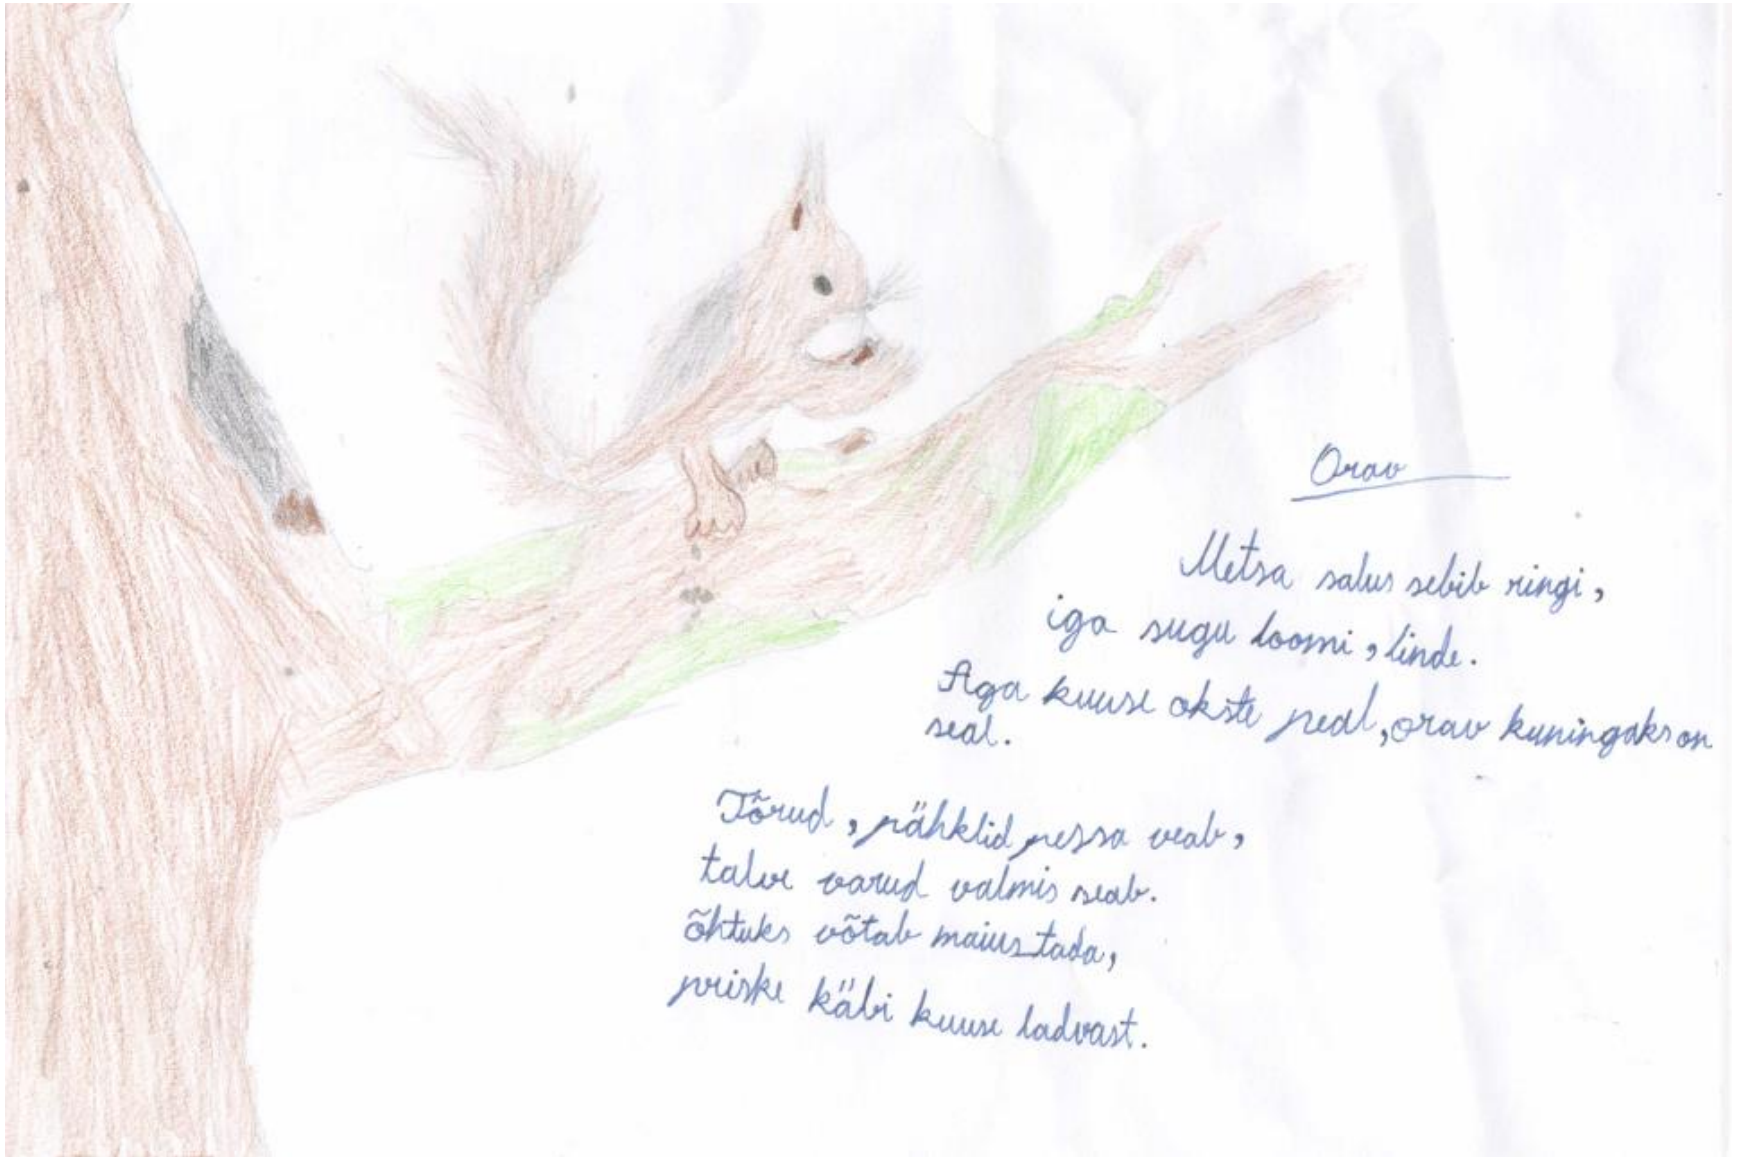 Orav
Metsa salus sebib ringi,
iga sugu loomi, linde.
Aga kuuse okste peal, orav kuningaks on
seal.
Tõrud, pähklid pessa veab,
talve varud valmis seab.
Õhtuks võtab maiustada,
priske käbi kuuse ladvast.